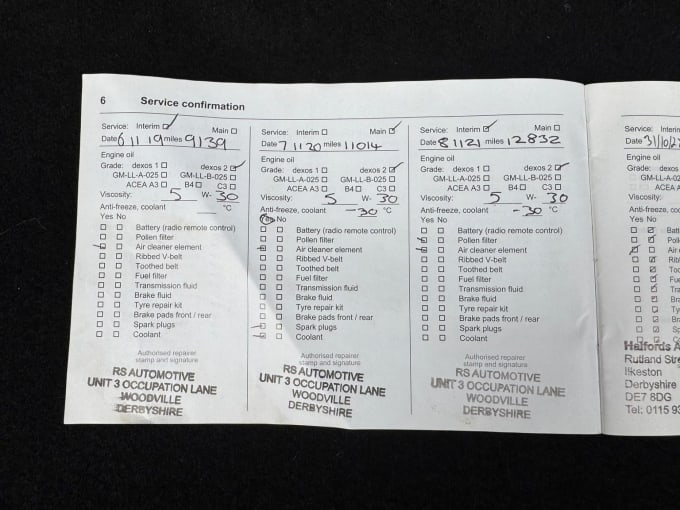 6 Service confirmation
Service: Interim ☑ Main ☐
Date 6 11 19 miles 9139
Engine oil
Grade: dexos 1 ☐ dexos 2 ☑
GM-LL-A-025 ☐ GM-LL-B-025 ☐
ACEA A3 ☐ B4 ☐ C3 ☐
Viscosity: 5 W- 30
Anti-freeze, coolant °C
Yes No
☐ ☐ Battery (radio remote control)
☐ ☐ Pollen filter
☑ ☐ Air cleaner element
☐ ☐ Ribbed V-belt
☐ ☐ Toothed belt
☐ ☐ Fuel filter
☐ ☐ Transmission fluid
☐ ☐ Brake fluid
☐ ☐ Tyre repair kit
☐ ☐ Brake pads front / rear
☐ ☐ Spark plugs
☐ ☐ Coolant
Authorised repairer
stamp and signature
RS AUTOMOTIVE
UNIT 3 OCCUPATION LANE
WOODVILLE
DERBYSHIRE
Service: Interim ☐ Main ☑
Date 7 11 20 miles 11014
Engine oil
Grade: dexos 1 ☐ dexos 2 ☑
GM-LL-A-025 ☐ GM-LL-B-025 ☐
ACEA A3 ☐ B4 ☐ C3 ☐
Viscosity: 5 W- 30
Anti-freeze, coolant -30 °C
Yes No
☐ ☐ Battery (radio remote control)
☐ ☐ Pollen filter
☑ ☐ Air cleaner element
☐ ☐ Ribbed V-belt
☐ ☐ Toothed belt
☐ ☐ Fuel filter
☐ ☐ Transmission fluid
☐ ☐ Brake fluid
☐ ☐ Tyre repair kit
☐ ☐ Brake pads front / rear
☑ ☐ Spark plugs
☑ ☐ Coolant
Authorised repairer
stamp and signature
RS AUTOMOTIVE
UNIT 3 OCCUPATION LANE
WOODVILLE
DERBYSHIRE
Service: Interim ☑ Main ☐
Date 8 11 21 miles 12832
Engine oil
Grade: dexos 1 ☐ dexos 2 ☑
GM-LL-A-025 ☐ GM-LL-B-025 ☐
ACEA A3 ☐ B4 ☐ C3 ☐
Viscosity: 5 W- 30
Anti-freeze, coolant -30 °C
Yes No
☐ ☐ Battery (radio remote control)
☑ ☐ Pollen filter
☑ ☐ Air cleaner element
☐ ☐ Ribbed V-belt
☐ ☐ Toothed belt
☐ ☐ Fuel filter
☐ ☐ Transmission fluid
☐ ☐ Brake fluid
☐ ☐ Tyre repair kit
☐ ☐ Brake pads front / rear
☐ ☐ Spark plugs
☐ ☐ Coolant
Authorised repairer
stamp and signature
RS AUTOMOTIVE
UNIT 3 OCCUPATION LANE
WOODVILLE
DERBYSHIRE
Service: Interim
Date 31/10/2
Engine oil
Grade: dexos
GM-LL-A-02
ACEA A
Viscosity:
Anti-freeze, coo
Yes No
Halfords A
Rutland Stre
Ilkeston
Derbyshire
DE7 8DG
Tel: 0115 93